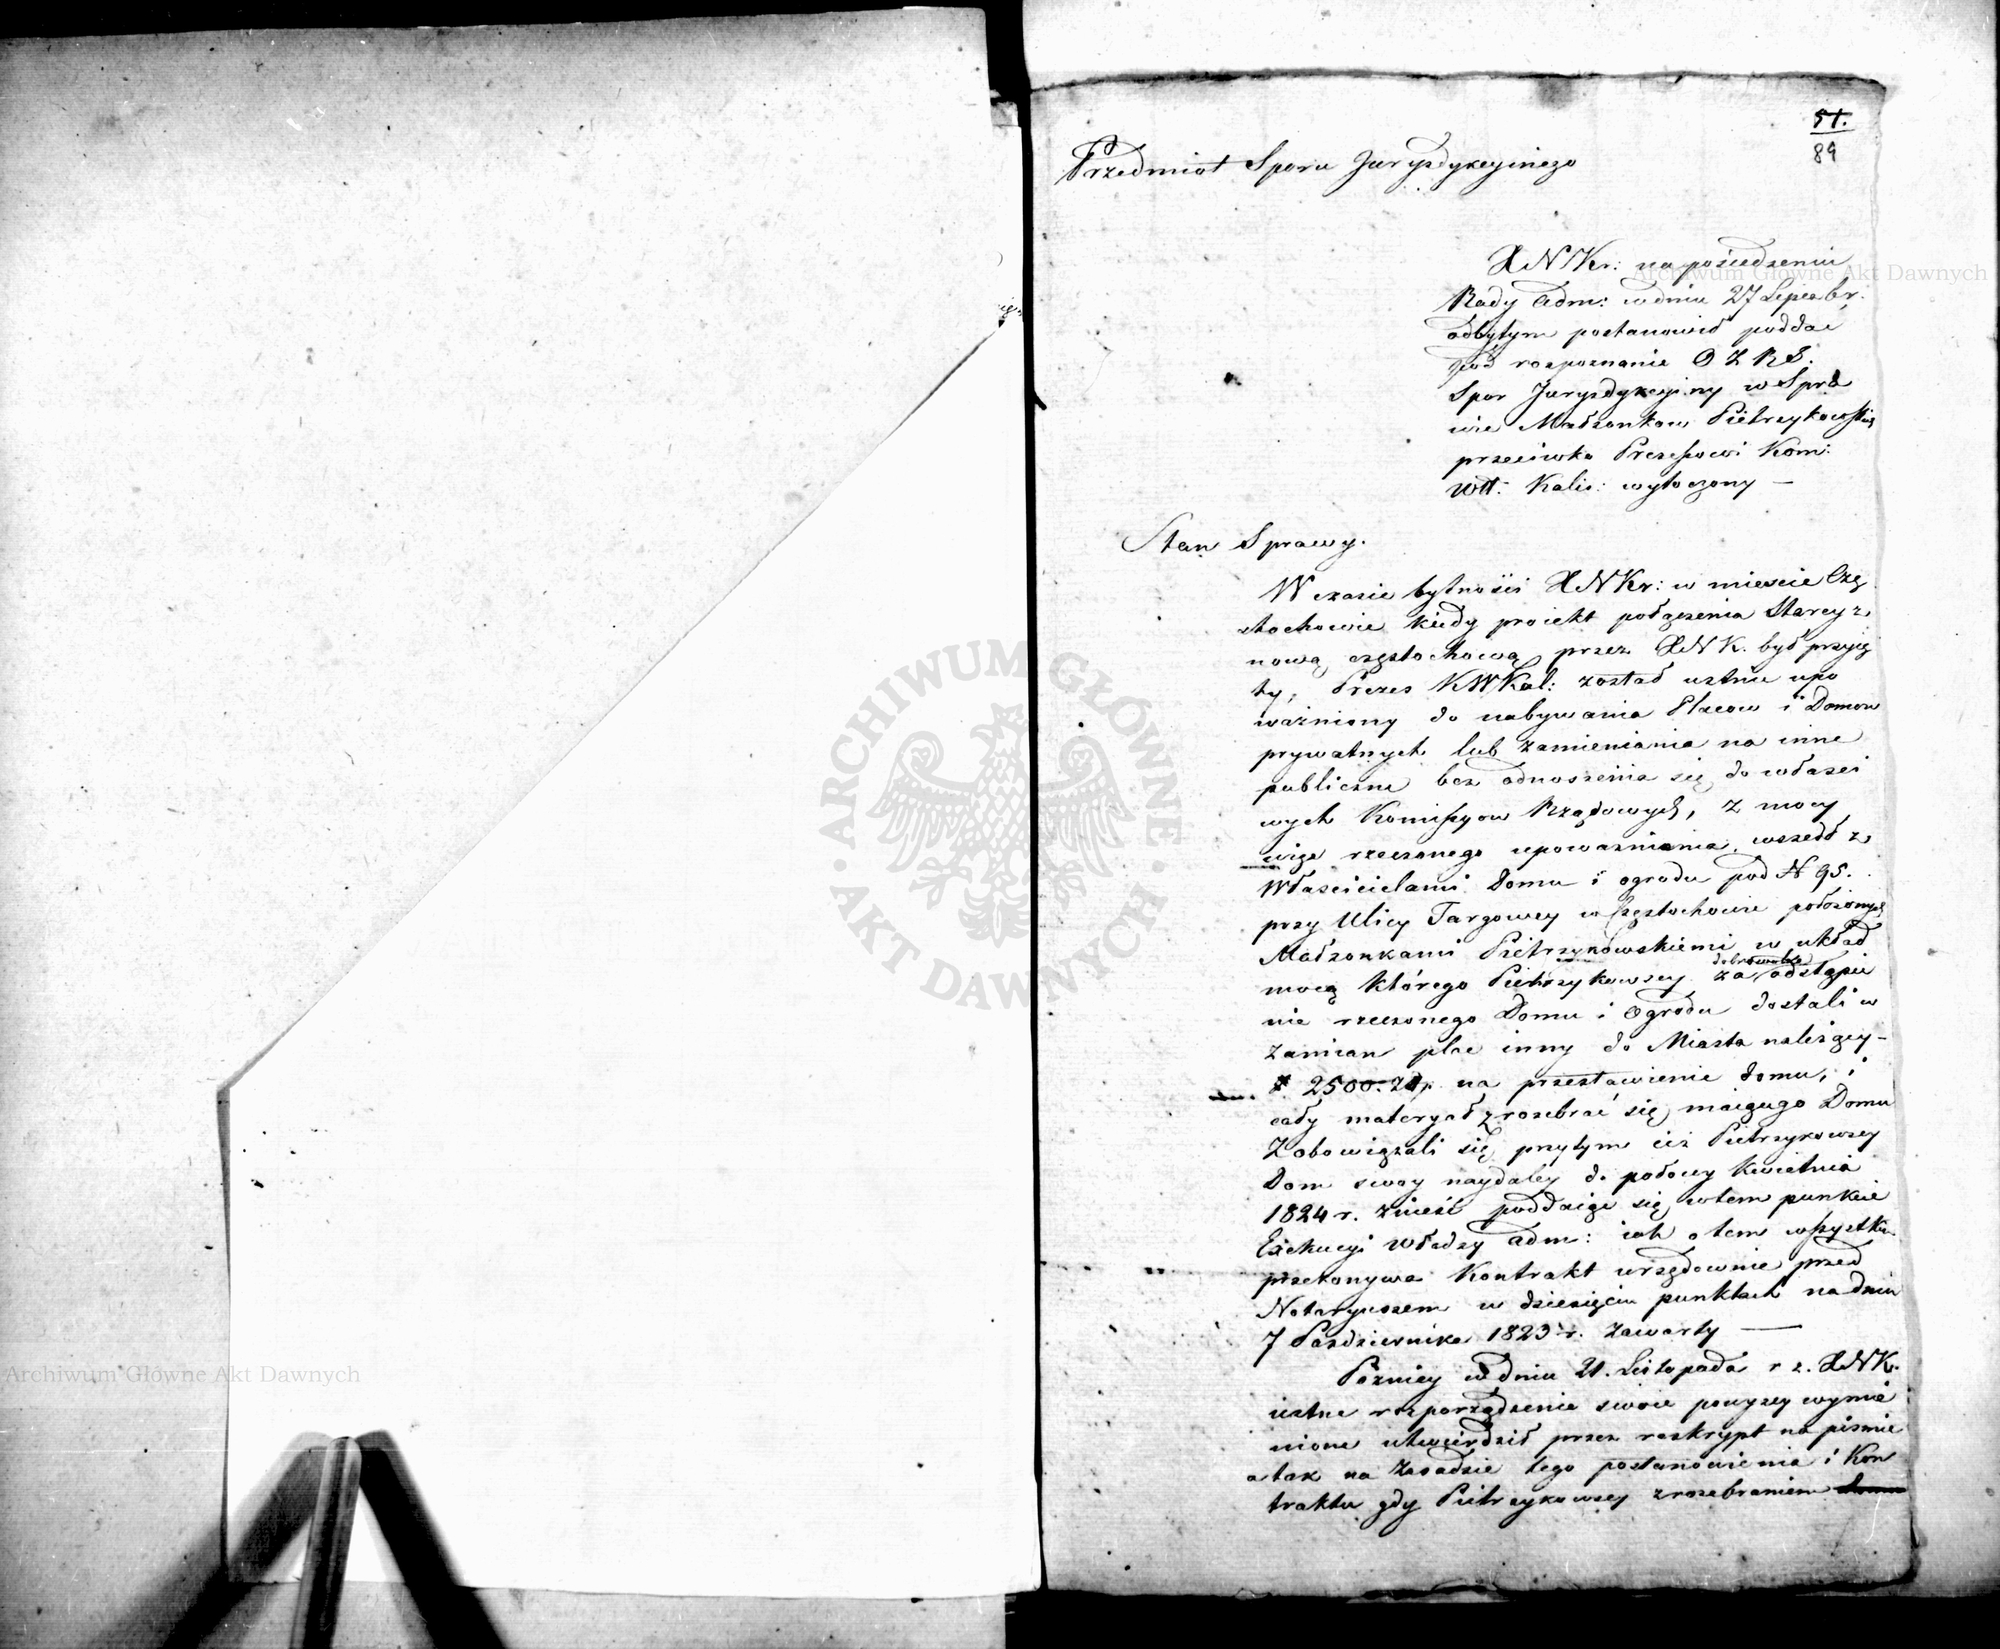 51.
89
Przedmiot Sporu Jurysdykcyinego
XNKr: na posiedzeniu
Rady Adm: w dniu 27 Lipca br.
odbytym postanowił poddać
pod rozpoznanie O Z R S.
Spor Jurysdykcyiny w Spra
wie Małżonkow Pietrzykowskich
przeciwko Prezesowi Kom:
Wtt: Kalis: wytoczony —
Stan Sprawy.
W czasie bytności XNKr: w mieście Czę
stochowie kiedy proiekt połączenia Starey z
nową częstochową przez XNK. był przyię
ty, Prezes KWKal: został ustnie upo
ważniony do nabywania Placow i Domow
prywatnych lub zamieniania na inne
publiczne bez odnoszenia się do właści
wych Komissyow Rządowych, z mocy
więc rzeczonego upoważnienia wszedł z
Właścicielami Domu i ogrodu pod N 95.
przy Ulicy Targowey w Częstochowie położonych
Małżonkami Pietrzykowskiemi w układ
mocą którego Pietrzykowscy za dobrowolne odstąpie
nie rzeczonego Domu i Ogrodu dostali w
zamian plac inny do Miasta należący –
2500. Złp. na przestawienie domu, i
cały materyał z rozebrać się maiącego Domu
Zobowiązali się przytym też Pietrzykowscy
Dom swoy naydaley do połowy Kwietnia
1824 r. znieść poddaiąc się w tem punkcie
Exekucyi Władzy Adm: iak o tem wszystkiem
przekonywa Kontrakt urzędownie przed
Notaryuszem w dziesięciu punktach na dniu
7 Pazdziernika 1823 r. zawarty —
Pozniey w dniu 21. Listopada r z. XNK.
ustne rozporządzenie swoie powyzey wymie
nione utwierdził przez reskrypt na pismie
a tak na zasadzie tego postanowienia i Kon
traktu gdy Pietrzykowscy z rozebraniem
ARCHIWUM GŁÓWNE · AKT DAWNYCH ·
Archiwum Główne Akt Dawnych
Archiwum Główne Akt Dawnych